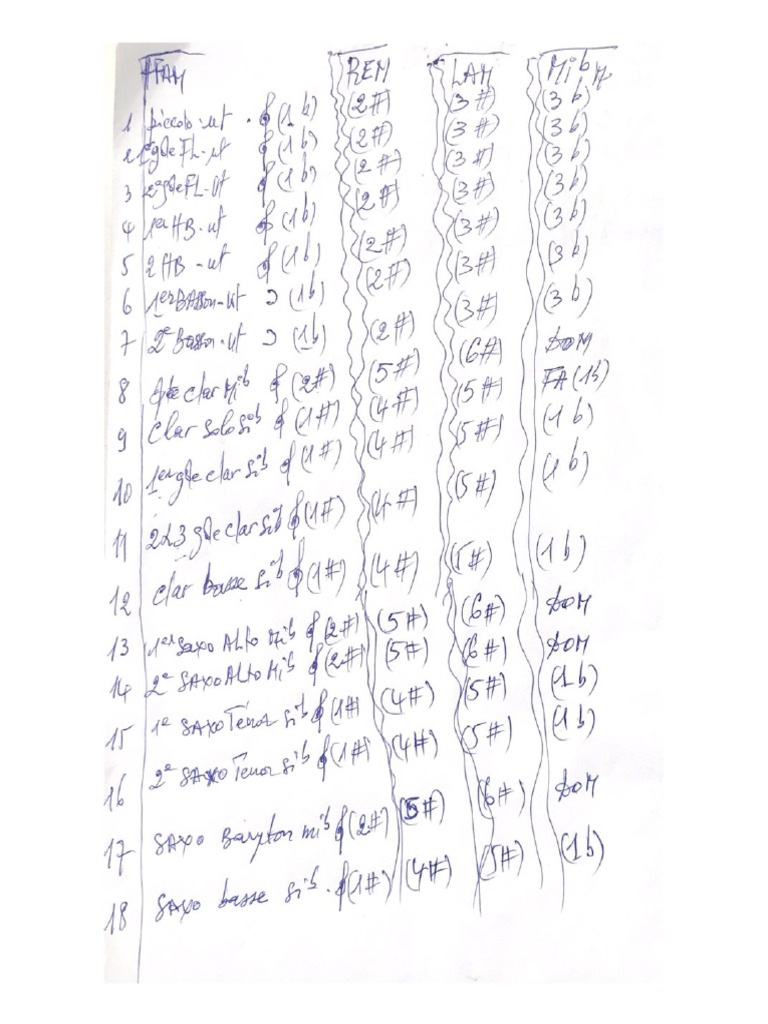 FAM REM LAM Mib M
1 piccolo-ut (1b) (2#) (3#) (3b)
2 1e gde FL-ut (1b) (2#) (3#) (3b)
3 2e gde FL-Ut (1b) (2#) (3#) (3b)
4 1er HB-ut (1b) (2#) (3#) (3b)
5 2 HB-ut (1b) (2#) (3#) (3b)
6 1er BASSon-Ut (1b) (2#) (3#) (3b)
7 2e Basson-Ut (1b) (2#) (3#) (3b)
8 pte clar Mib (2#) (5#) (6#) DOM
9 Clar Solo Sib (1#) (4#) (5#) FA (1b)
10 1er gde clar Sib (1#) (4#) (5#) (1b)
11 2&3 gde clar Sib (1#) (4#) (5#) (1b)
12 clar basse Sib (1#) (4#) (5#) (1b)
13 1er Saxo Alto Mib (2#) (5#) (6#) DOM
14 2e SAXO Alto Mib (2#) (5#) (6#) DOM
15 1e SAXO Ténor Sib (1#) (4#) (5#) (1b)
16 2e SAXO Tenor Sib (1#) (4#) (5#) (1b)
17 SAXO Baryton mib (2#) (5#) (6#) DOM
18 SAXO basse Sib. (1#) (4#) (5#) (1b)